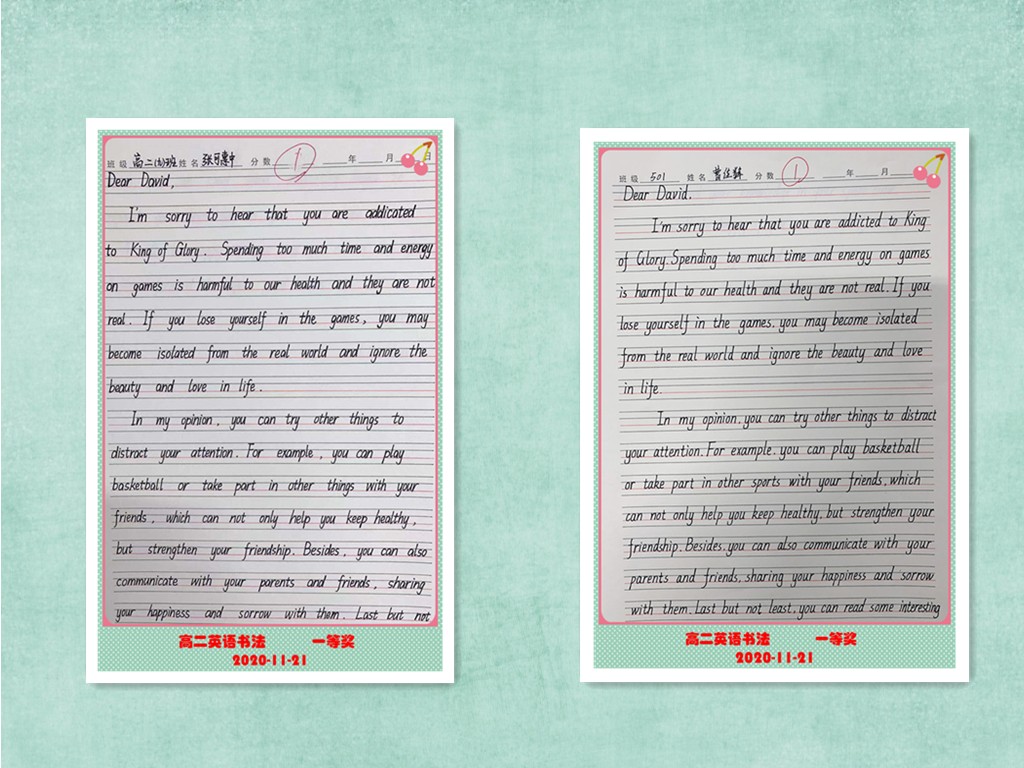 班 级 高二(5)班 姓 名 分 数 1 年 月 日
Dear David,
I'm sorry to hear that you are addicated
to King of Glory. Spending too much time and energy
on games is harmful to our health and they are not
real. If you lose yourself in the games, you may
become isolated from the real world and ignore the
beauty and love in life.
In my opinion, you can try other things to
distract your attention. For example, you can play
basketball or take part in other things with your
friends, which can not only help you keep healthy,
but strengthen your friendship. Besides, you can also
communicate with your parents and friends, sharing
your happiness and sorrow with them. Last but not
高二英语书法 一等奖
2020-11-21
班 级 501 姓 名 分 数 1 年 月
Dear David.
I'm sorry to hear that you are addicted to King
of Glory. Spending too much time and energy on games
is harmful to our health and they are not real. If you
lose yourself in the games, you may become isolated
from the real world and ignore the beauty and love
in life.
In my opinion, you can try other things to distract
your attention. For example, you can play basketball
or take part in other sports with your friends, which
can not only help you keep healthy, but strengthen your
friendship. Besides, you can also communicate with your
parents and friends, sharing your happiness and sorrow
with them. Last but not least, you can read some interesting
高二英语书法 一等奖
2020-11-21